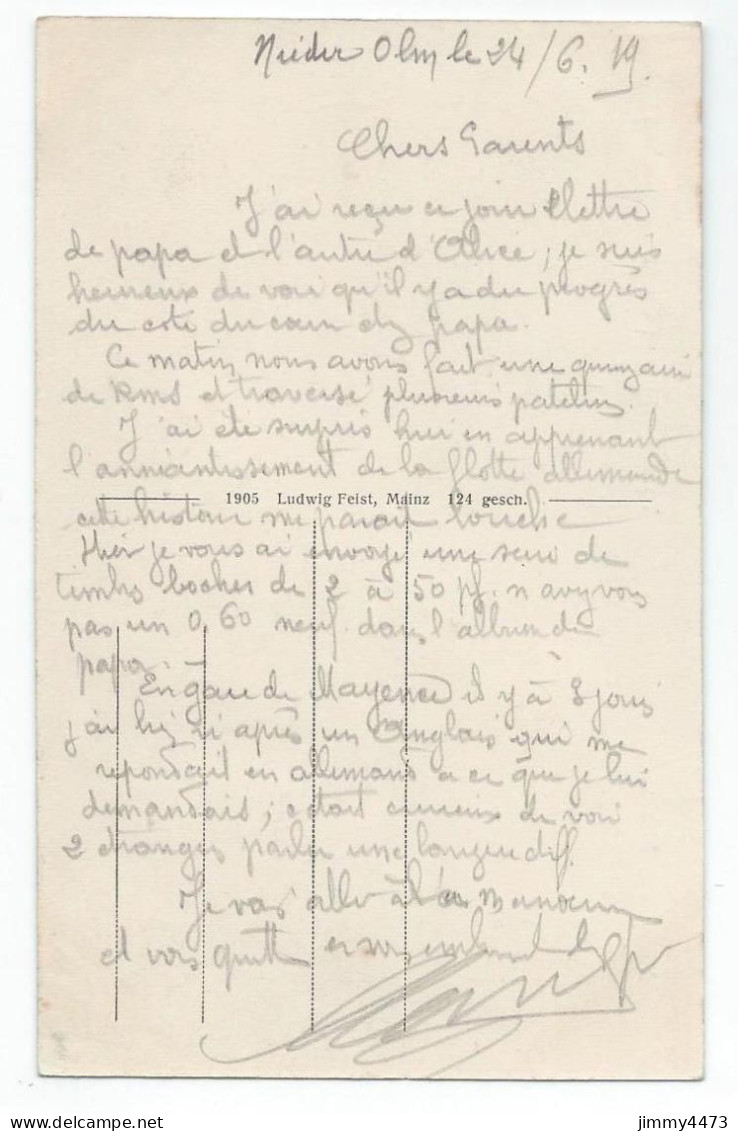 Nieder Olm le 24/6.19.
Chers Parents
J'ai reçu ce jour lettre
de papa et l'autre d'Alice, je suis
heureux de voir qu'il y a du progrès
du coté du cœur chez papa.
Ce matin nous avons fait une quinzaine
de kms et traversé plusieurs patelins.
J'ai été surpris hier en apprenant
l'anéantissement de la flotte allemande
1905 Ludwig Feist, Mainz 124 gesch.
cette histoire me parait louche
Hier je vous ai envoyé une serie de
timbres boches de 2 à 50 pf. n'avez vous
pas un 0,60 neuf dans l'album de
papa.
En gare de Mayence il y a 8 jours
j'ai un Anglais qui me
repondait en allemand a ce que je lui
demandais; c'etait curieux de voir
2 etrangers parler une langue diff.
Je vais aller à la manoeuvre
et vous quitte en vous embrassant
jimmy4473